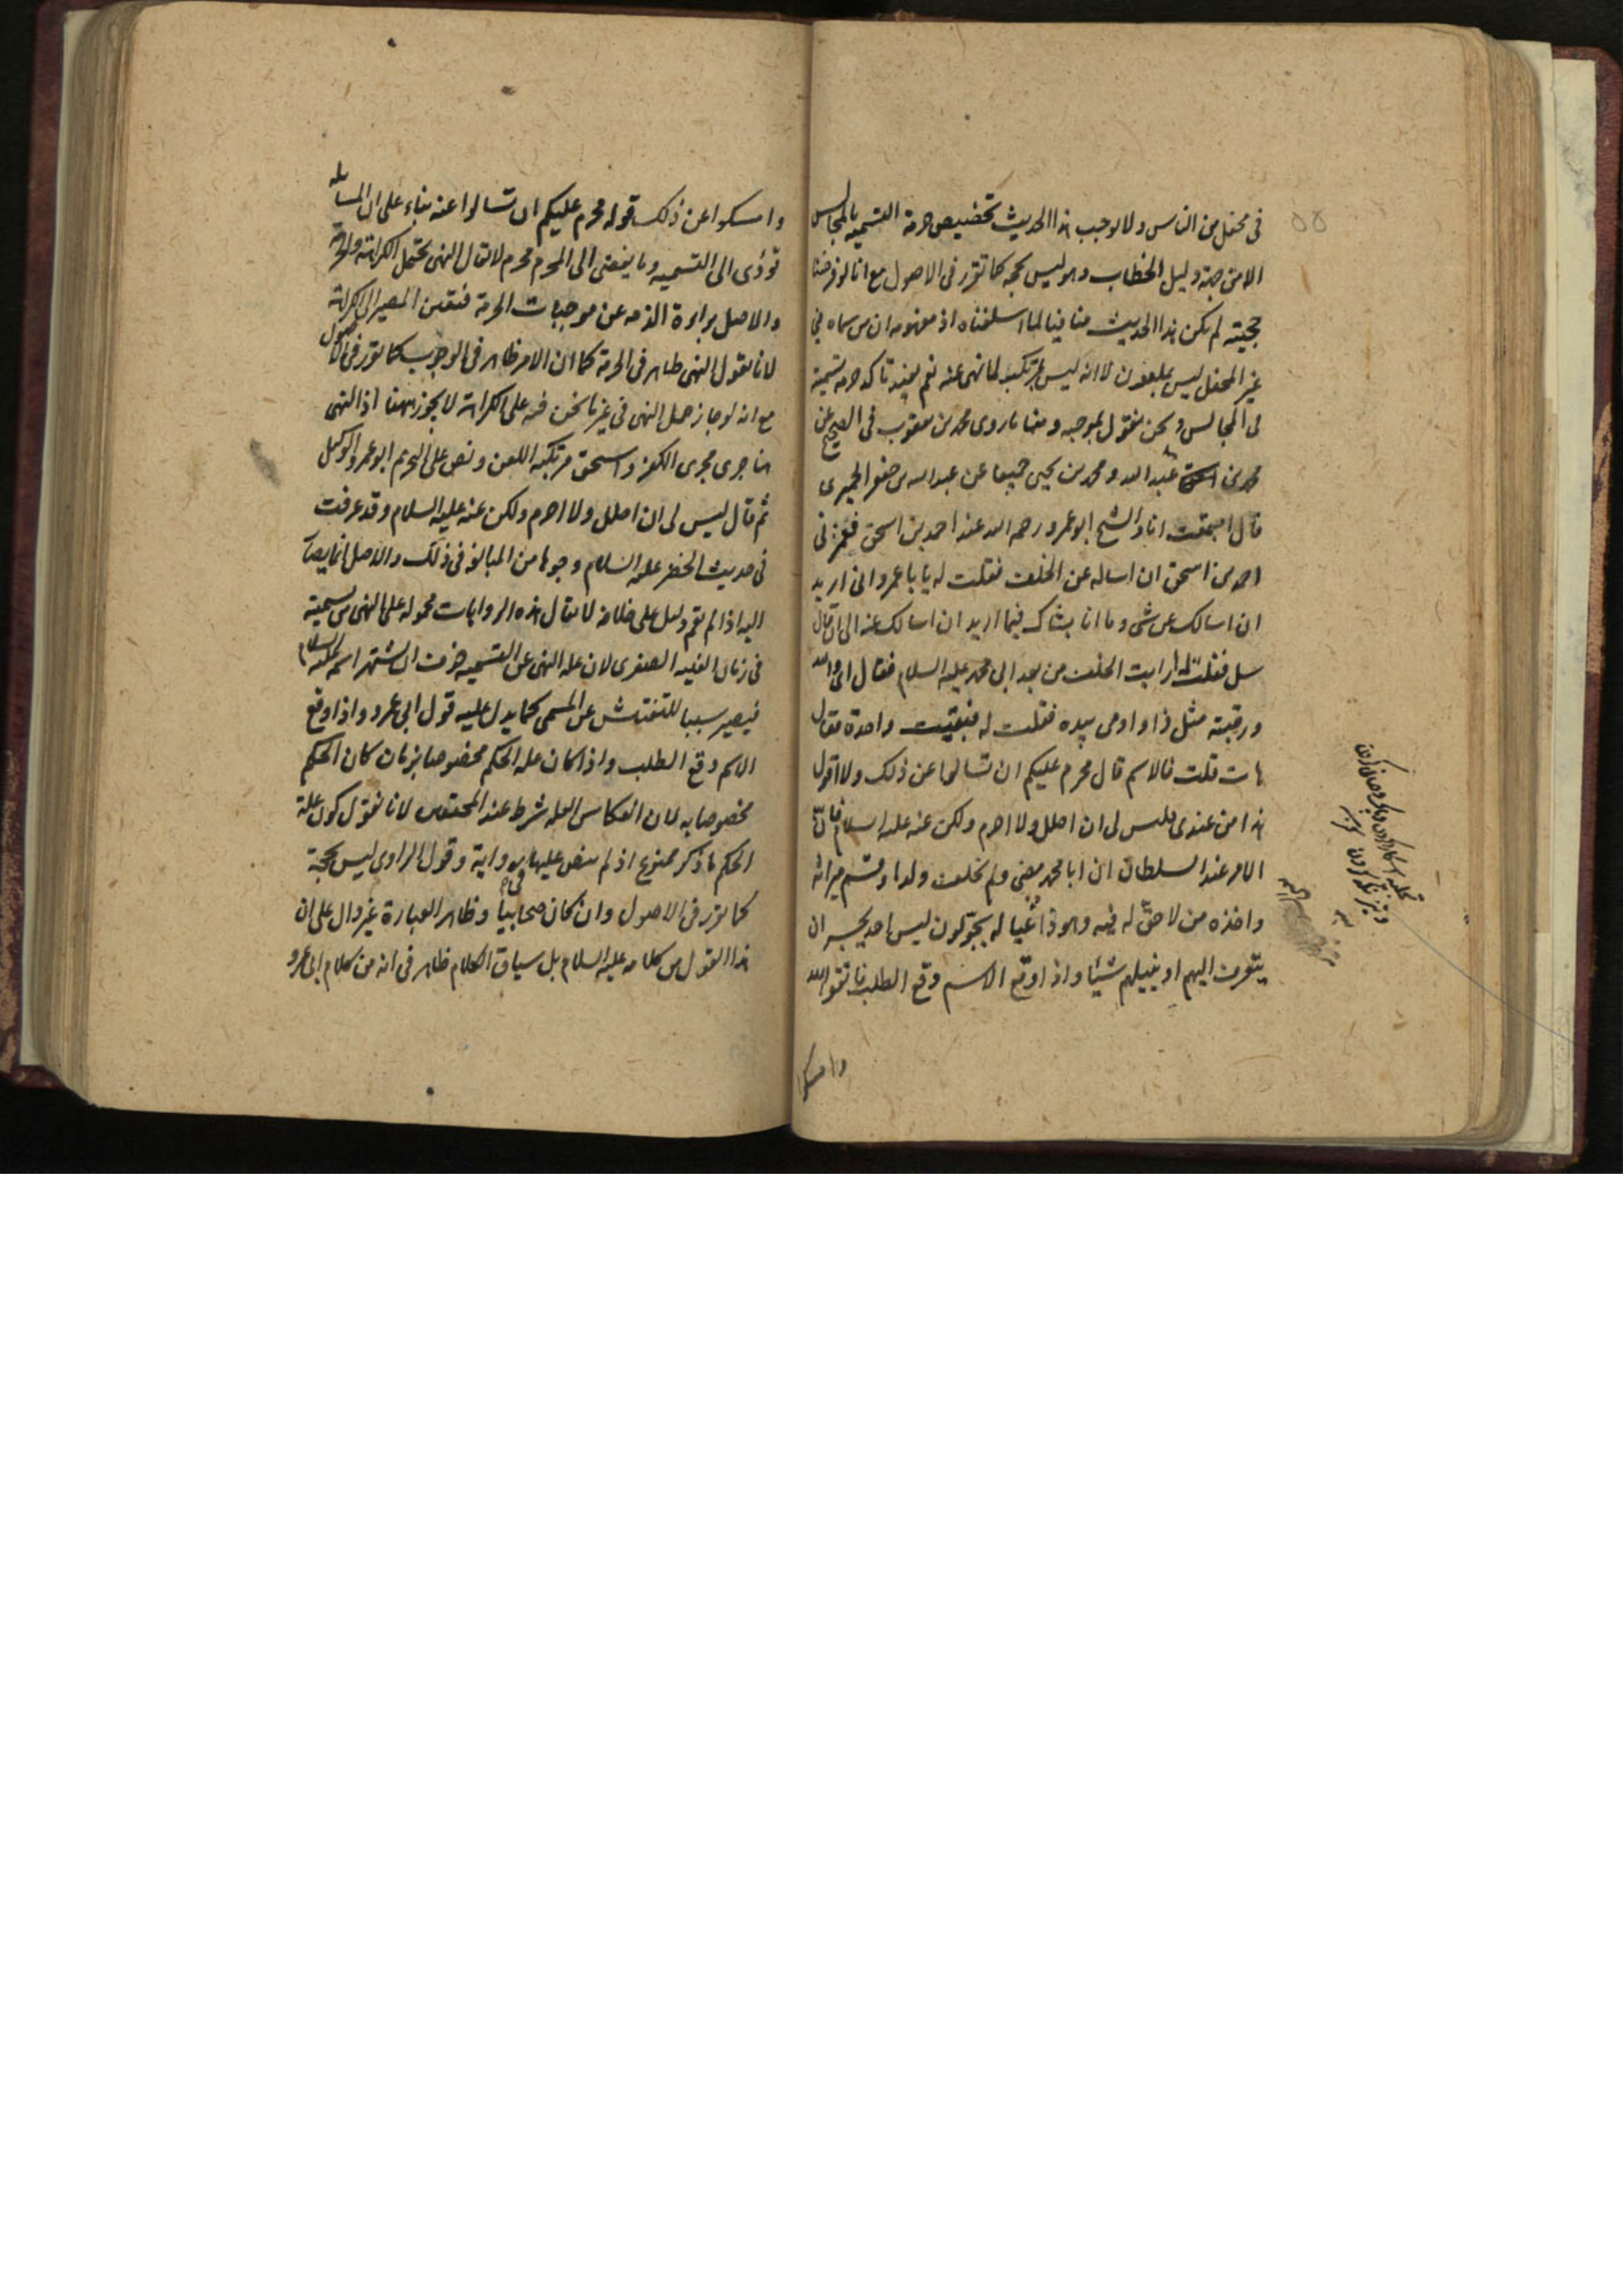 في محفل من الناس ولا يوجب هذا الحديث تخصيص حرمة التسمية بالمجالس
الا من جهة دليل الخطاب وهو ليس بحجة كما تقرر في الاصول مع انا لو فرضنا
حجيته لم يكن هذا الحديث منافيا لما اسلفناه اذ مفهومه ان من سماه في
غير المحفل ليس بملعون لا انه ليس بمرتكب لما نهى عنه نعم يفيد تاكد حرمة تسمية
في المجالس ونحن نقول بموجبه ومنها ما روى محمد بن يعقوب في الصحيح عن
محمد بن عبد الله ومحمد بن يحيى جميعا عن عبد الله بن جعفر الحميرى
قال اجتمعت انا والشيخ ابو عمرو رحمه الله عند احمد بن اسحق فغمزني
احمد بن اسحق ان اساله عن الخلف فقلت له يا با عمرو اني اريد
ان اسالك عن شى وما انا بشاك فيما اريد ان اسالك عنه الى ان قال
سل فقلت له ارايت الخلف من بعد ابي محمد عليه السلام فقال اي والله
ورقبته مثل ذا واومى بيده فقلت له فبقيت واحدة فقال
هات قلت فالاسم قال محرم عليكم ان تسالوا عن ذلك ولا اقول
هذا من عندى فليس لي ان احلل ولا احرم ولكن عنه عليه السلام فان
الامر عند السلطان ان ابا محمد مضى ولم يخلف ولدا وقسم ميراثه
واخذه من لا حق له فيه وهو ذا عياله يجولون ليس احد يجسر ان
يتعرف اليهم او ينيلهم شيئا واذا وقع الاسم وقع الطلب فاتقوا الله
وامسكوا
وامسكوا عن ذلك قوله محرم عليكم ان تسالوا عنه بناء على ان المسالة
تؤدى الى التسمية وما يفضى الى المحرم محرم لا يقال النهى يحتمل الكراهة والحرمة
والاصل براءة الذمة عن موجبات الحرمة فتعين المصير الى الكراهة
لانا نقول النهى ظاهر في الحرمة كما ان الامر ظاهر في الوجوب كما تقرر في الاصول
مع انه لو جاز حمل النهى في غير ما نحن فيه على الكراهة لا يجوز ههنا اذ النهى
هنا جرى مجرى الكفر واستحق مرتكبه اللعن ونص على التحريم ابو عمرو الوكيل
ثم قال ليس لي ان احلل ولا احرم ولكن عنه عليه السلام وقد عرفت
في حديث الخضر عليه السلام وجوها من المبالغة في ذلك والاصل انما يصار
اليه اذا لم يقم دليل على خلافه لا يقال هذه الروايات محمولة على النهى من تسميته
في زمان الغيبة الصغرى لان علة النهى عن التسمية خوف ان يشتهر اسمه عليه السلام
فيصير سببا للتفتيش عن المسمى كما يدل عليه قول ابي عمرو واذا وقع
الاسم وقع الطلب واذا كان علة الحكم مخصوصا بزمان كان الحكم
مخصوصا به لان انعكاس العلة شرط عند المحققين لانا نقول كون علة
الحكم ما ذكر ممنوع اذ لم ينص عليها في رواية وقول الراوى ليس بحجة
كما تقرر في الاصول وان كان صحابيا وظاهر العبارة غير دال على ان
هذا القول من كلامه عليه السلام بل سياق الكلام ظاهر في انه من كلام ابي عمرو